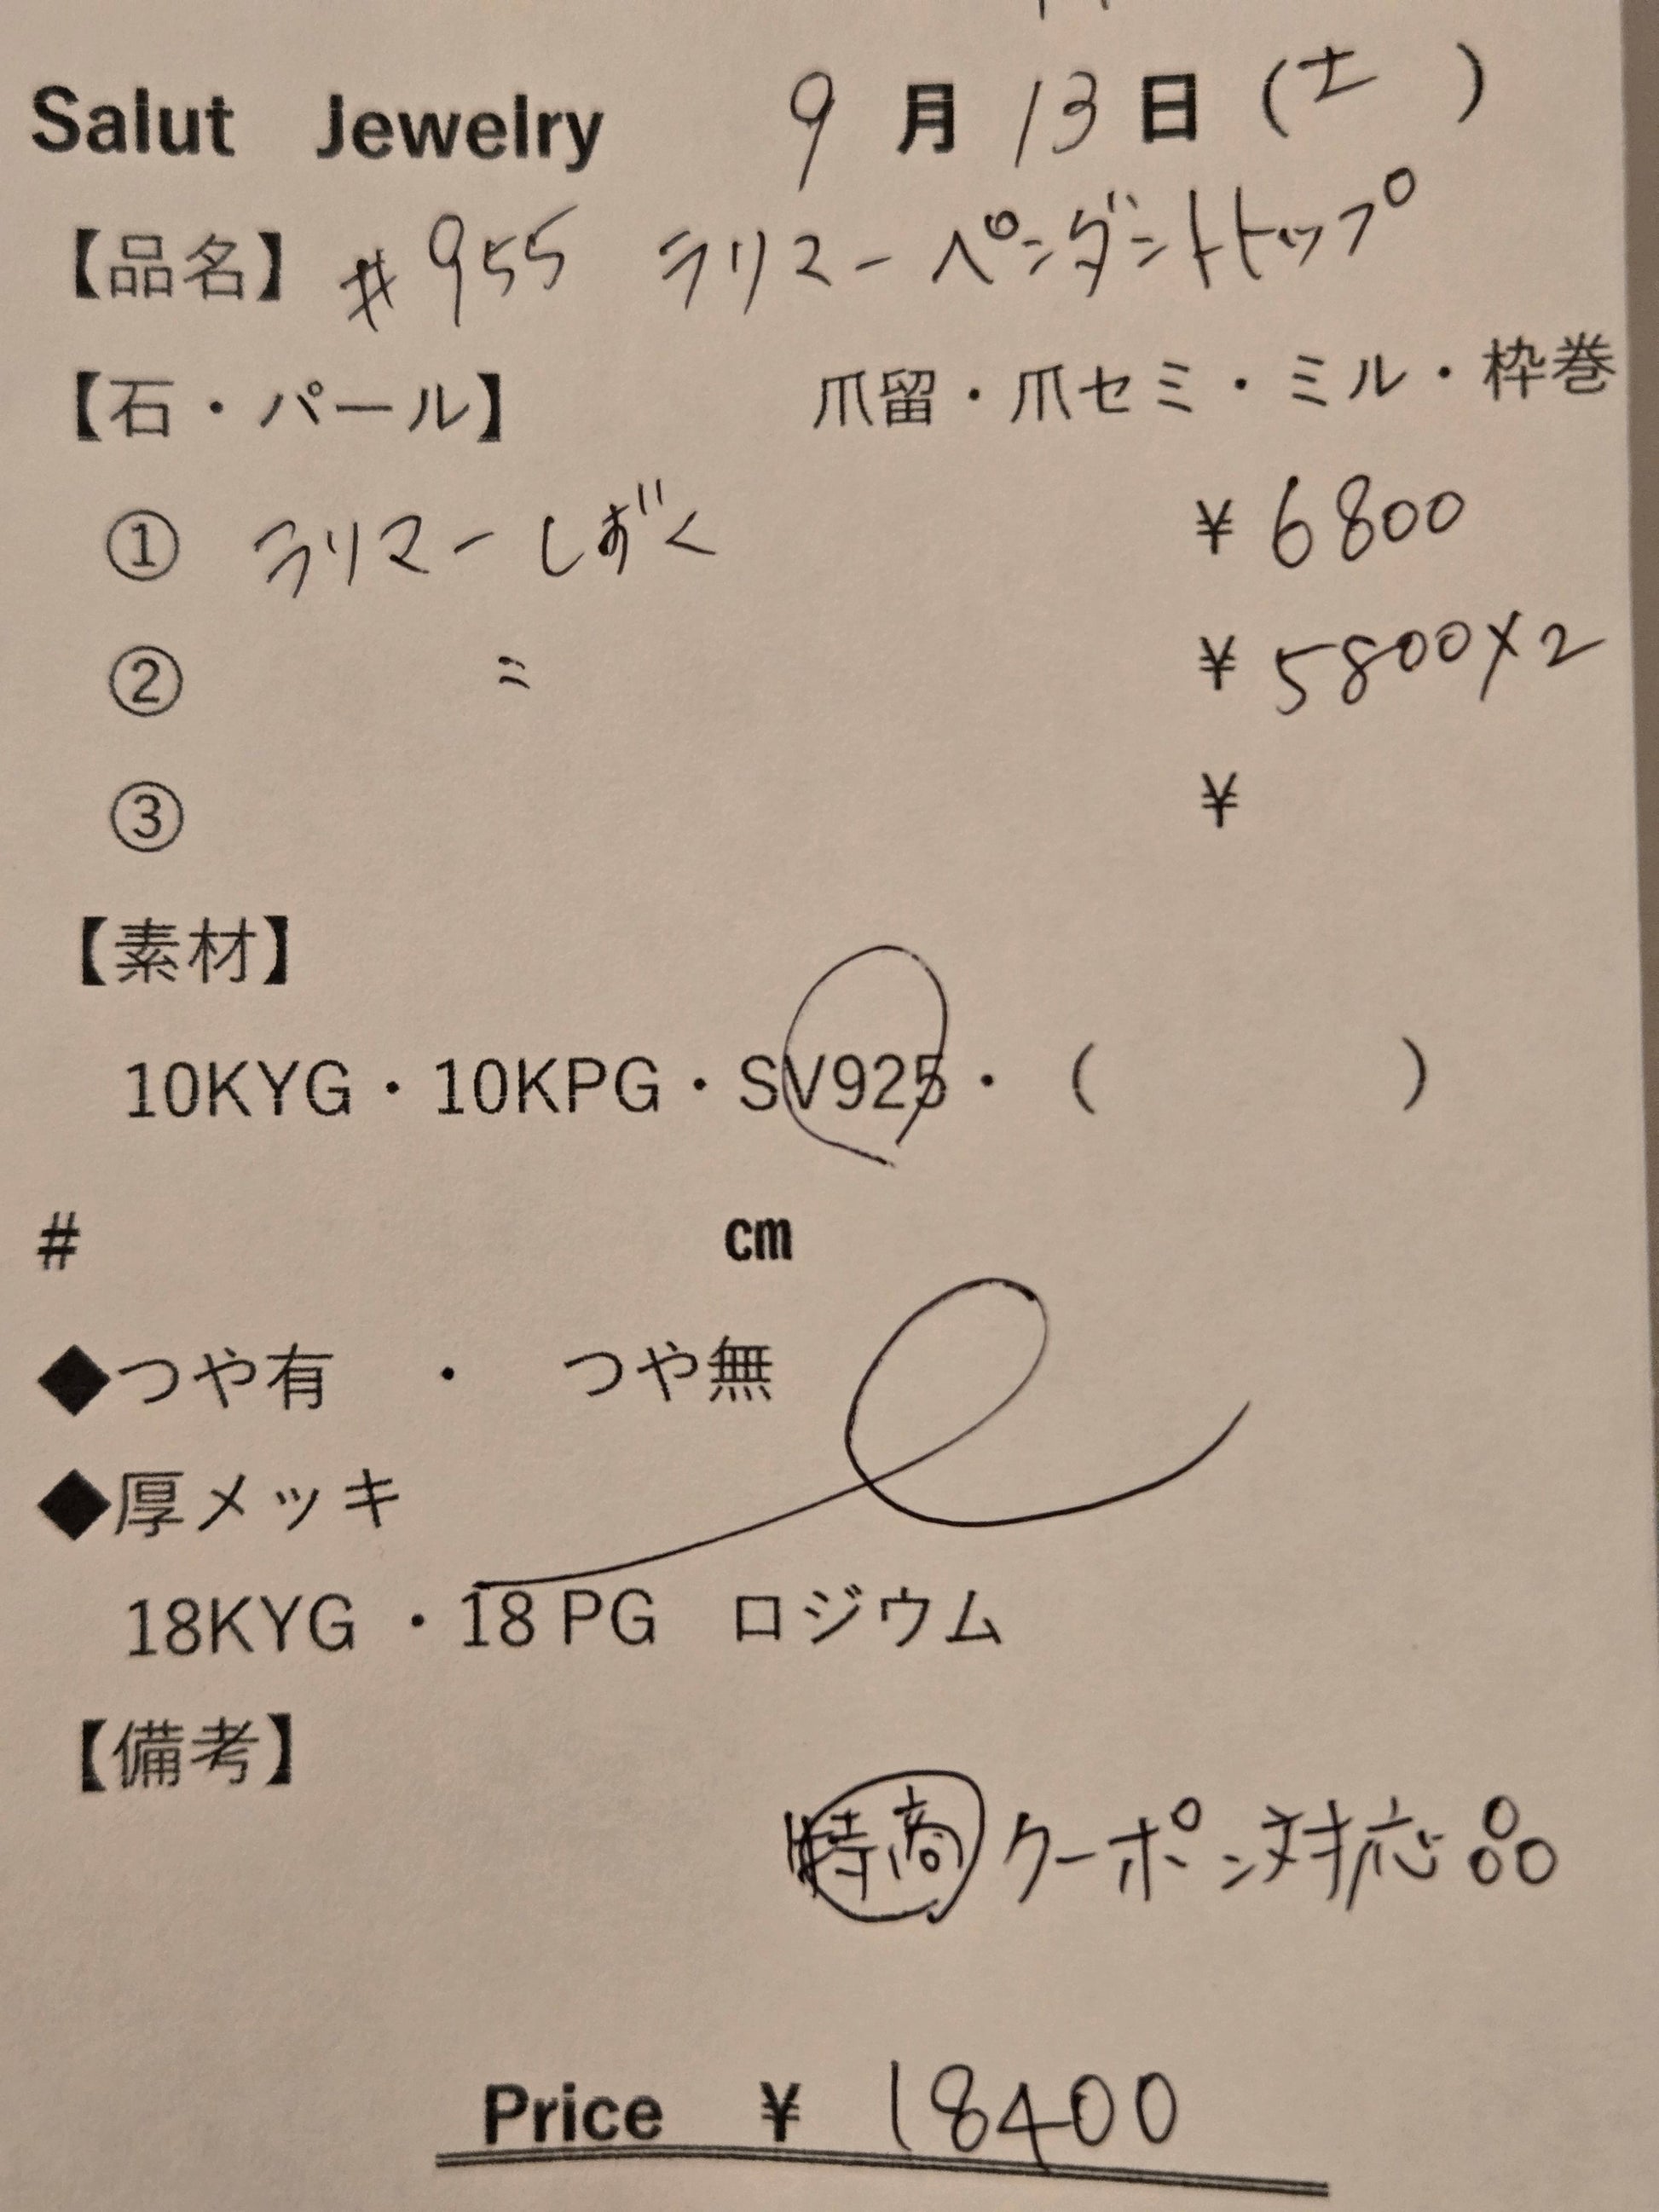 Salut Jewelry 9月13日(土)
【品名】 #955 ラリマーペンダントトップ
【石・パール】 爪留・爪セミ・ミル・枠巻
① ラリマーしずく ¥6800
② 〃 ¥5800×2
③ ¥
【素材】
10KYG・10KPG・SV925・( )
# cm
◆つや有 ・ つや無
◆厚メッキ
18KYG ・18 PG ロジウム
【備考】
特商 クーポン対応品
Price ¥ 18400